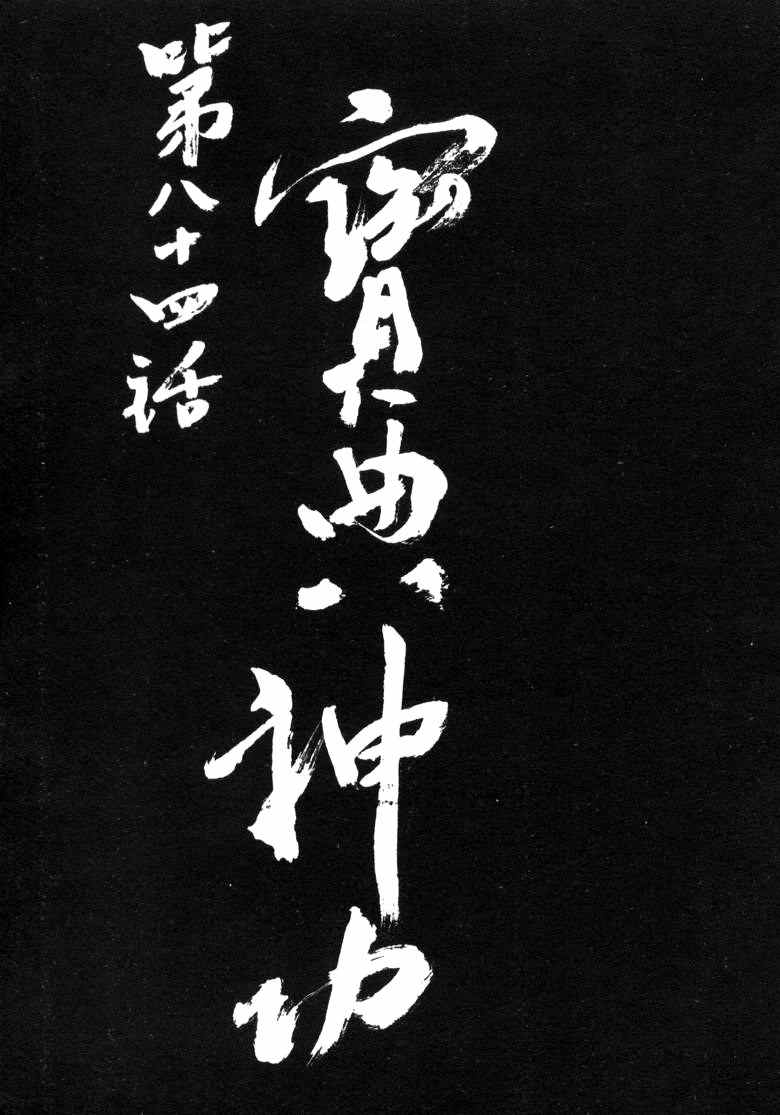 寶典神功
第八十四話